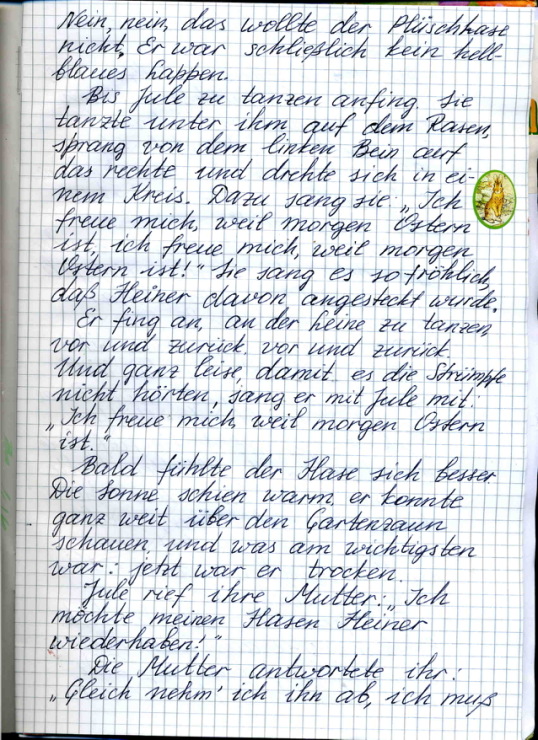 Nein, nein, das wollte der Plüschhase
nicht. Er war schließlich kein hell-
blaues Läppen.
Bis Jule zu tanzen anfing. Sie
tanzte unter ihm auf dem Rasen,
sprang von dem linken Bein auf
das rechte und drehte sich in ei-
nem Kreis. Dazu sang sie: „Ich
freue mich, weil morgen Ostern
ist, ich freue mich, weil morgen
Ostern ist!" Sie sang es so fröhlich,
daß Heiner davon angesteckt wurde.
Er fing an, an der Leine zu tanzen,
vor und zurück, vor und zurück.
Und ganz leise, damit es die Strümpfe
nicht hörten, sang er mit Jule mit:
„Ich freue mich, weil morgen Ostern
ist."
Bald fühlte der Hase sich besser.
Die Sonne schien warm, er konnte
ganz weit über den Gartenzaun
schauen, und was am wichtigsten
war: jetzt war er trocken.
Jule rief ihre Mutter: „Ich
möchte meinen Hasen Heiner
wiederhaben!"
Die Mutter antwortete ihr:
„Gleich nehm' ich ihn ab, ich muß